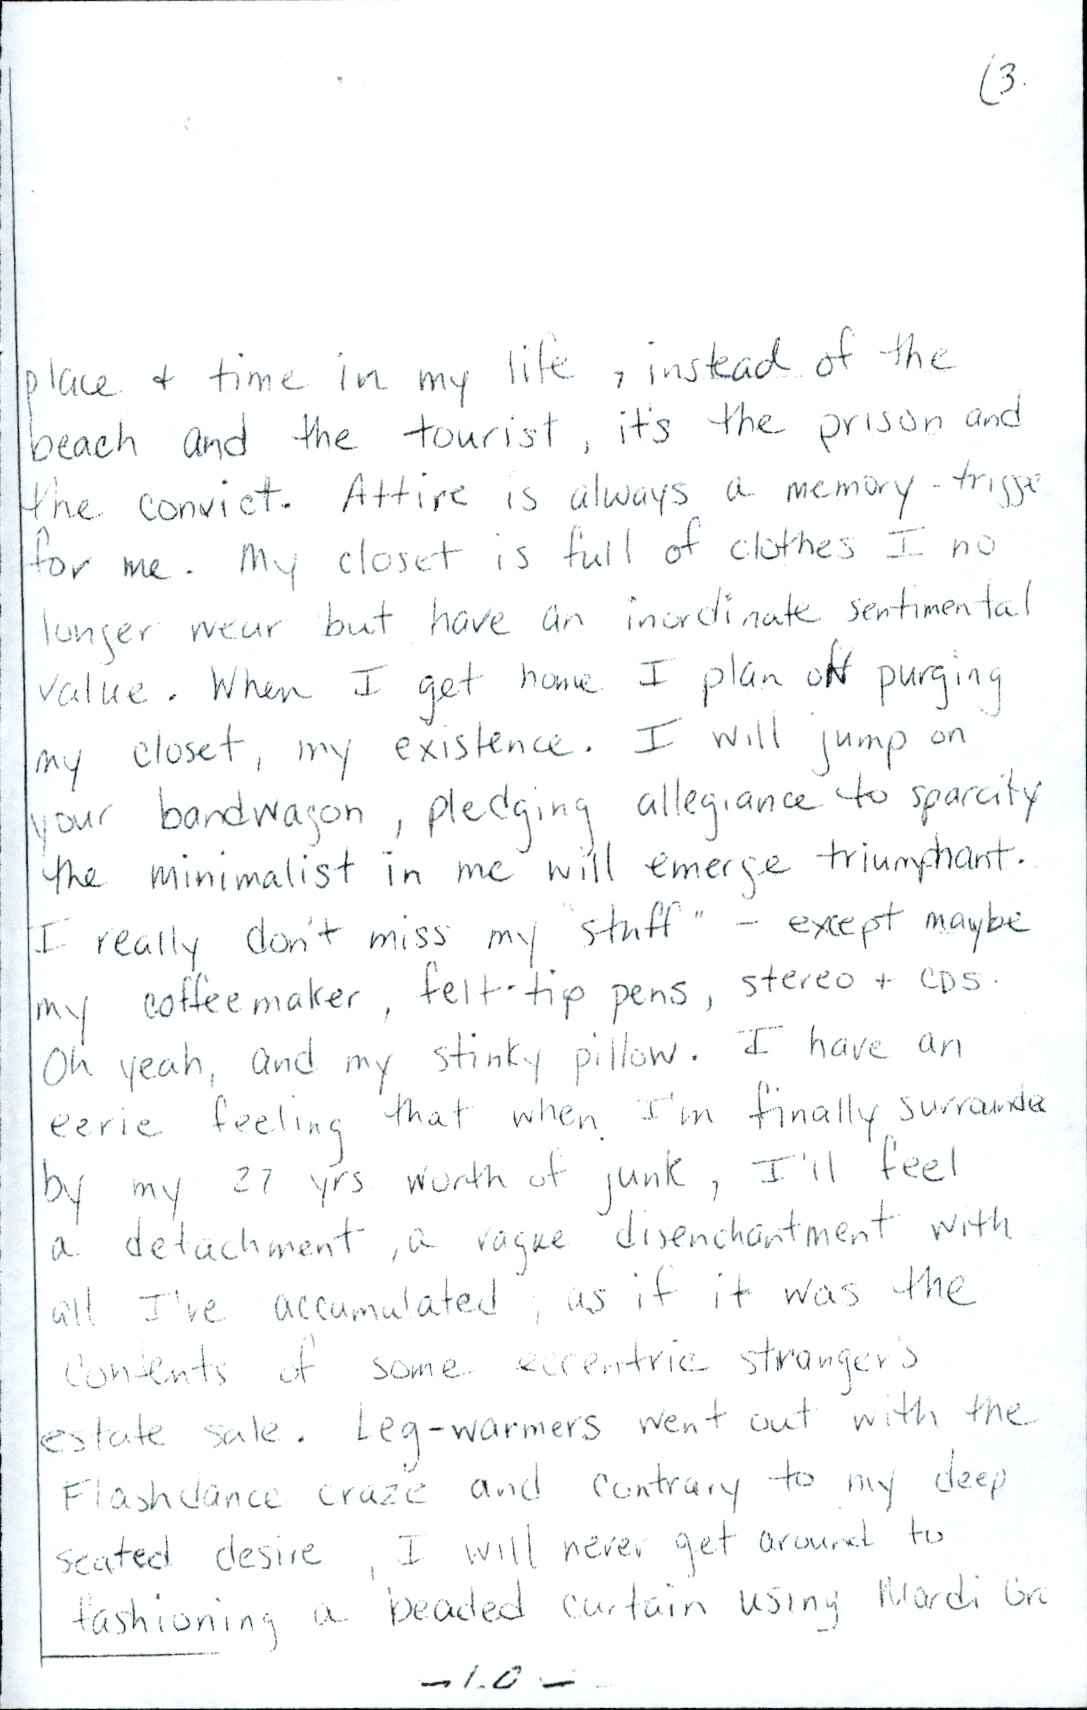 (3.
place & time in my life, instead of the
beach and the tourist, it's the prison and
the convict. Attire is always a memory-trigge
for me. My closet is full of clothes I no
longer wear but have an inordinate sentimental
value. When I get home I plan on purging
my closet, my existence. I will jump on
your bandwagon, pledging allegiance to sparcity
the minimalist in me will emerge triumphant.
I really don't miss my "stuff" - except maybe
my coffeemaker, felt-tip pens, stereo + CDS.
Oh yeah, and my stinky pillow. I have an
eerie feeling that when I'm finally surrounde
by my 27 yrs worth of junk, I'll feel
a detachment, a vague disenchantment with
all I've accumulated, as if it was the
contents of some eccentric stranger's
estate sale. Leg-warmers went out with the
Flashdance craze and contrary to my deep
seated desire, I will never get around to
fashioning a beaded curtain using Mardi Gra
-10-